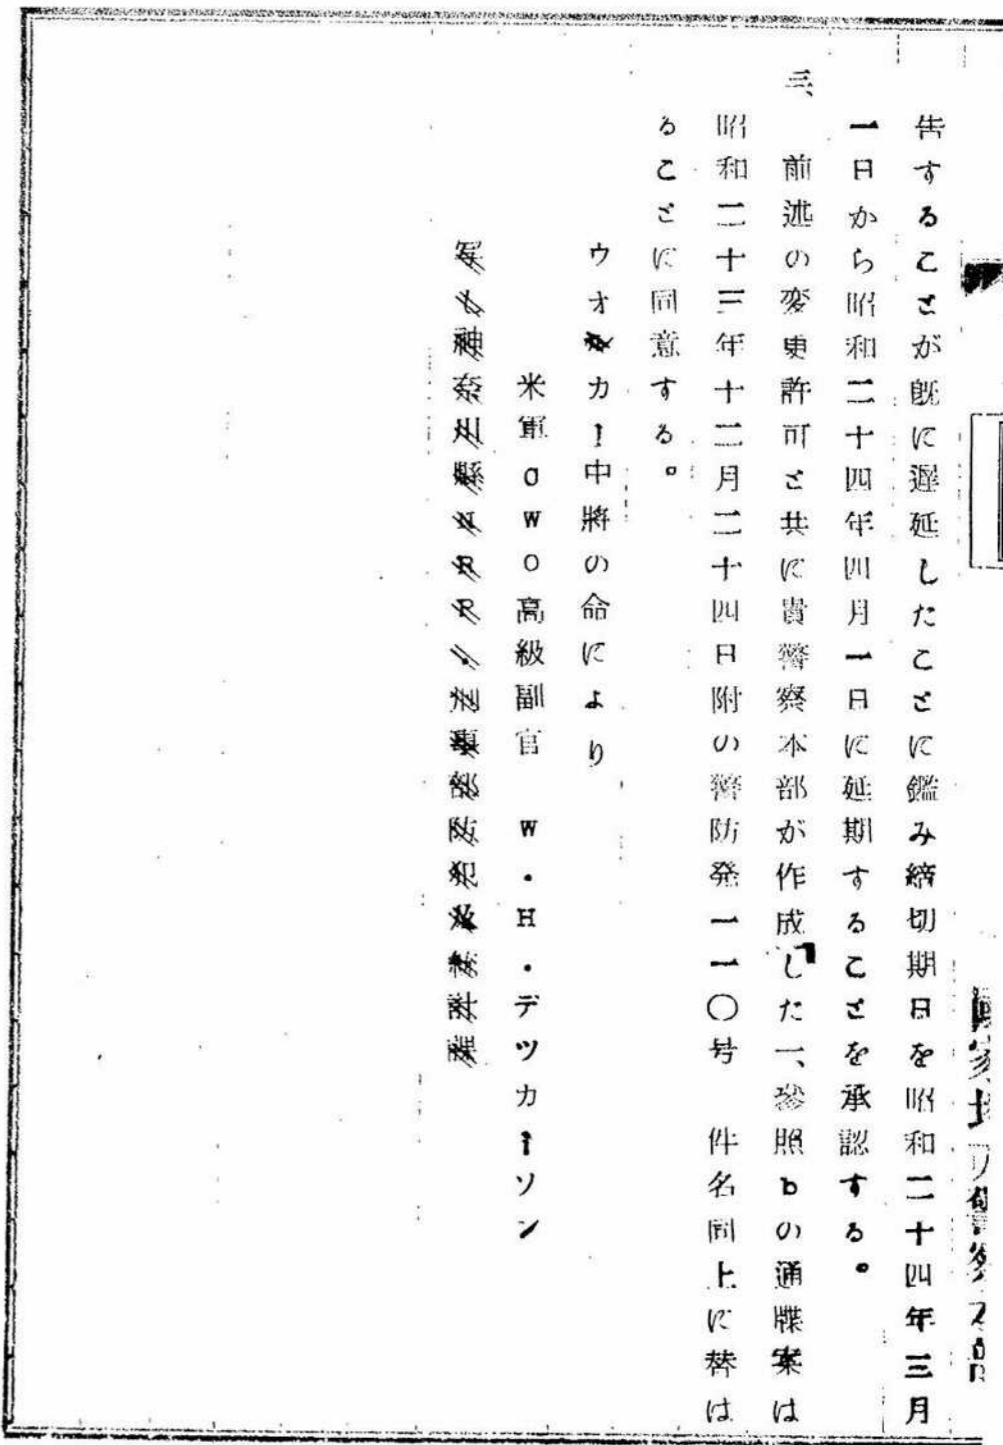 告することが既に遅延したことに鑑み締切期日を昭和二十四年三月
一日から昭和二十四年四月一日に延期することを承認する。
三、前述の変更許可と共に貴警察本部が作成した一、参照bの通牒案は
昭和二十三年十二月二十四日附の警防発一一〇号　件名同上に替は
ることに同意する。
ウオカー中將の命により
米軍OWO高級副官　W・H・デツカーソン
写し神奈川縣NRR
部防犯
国家地方警察本部